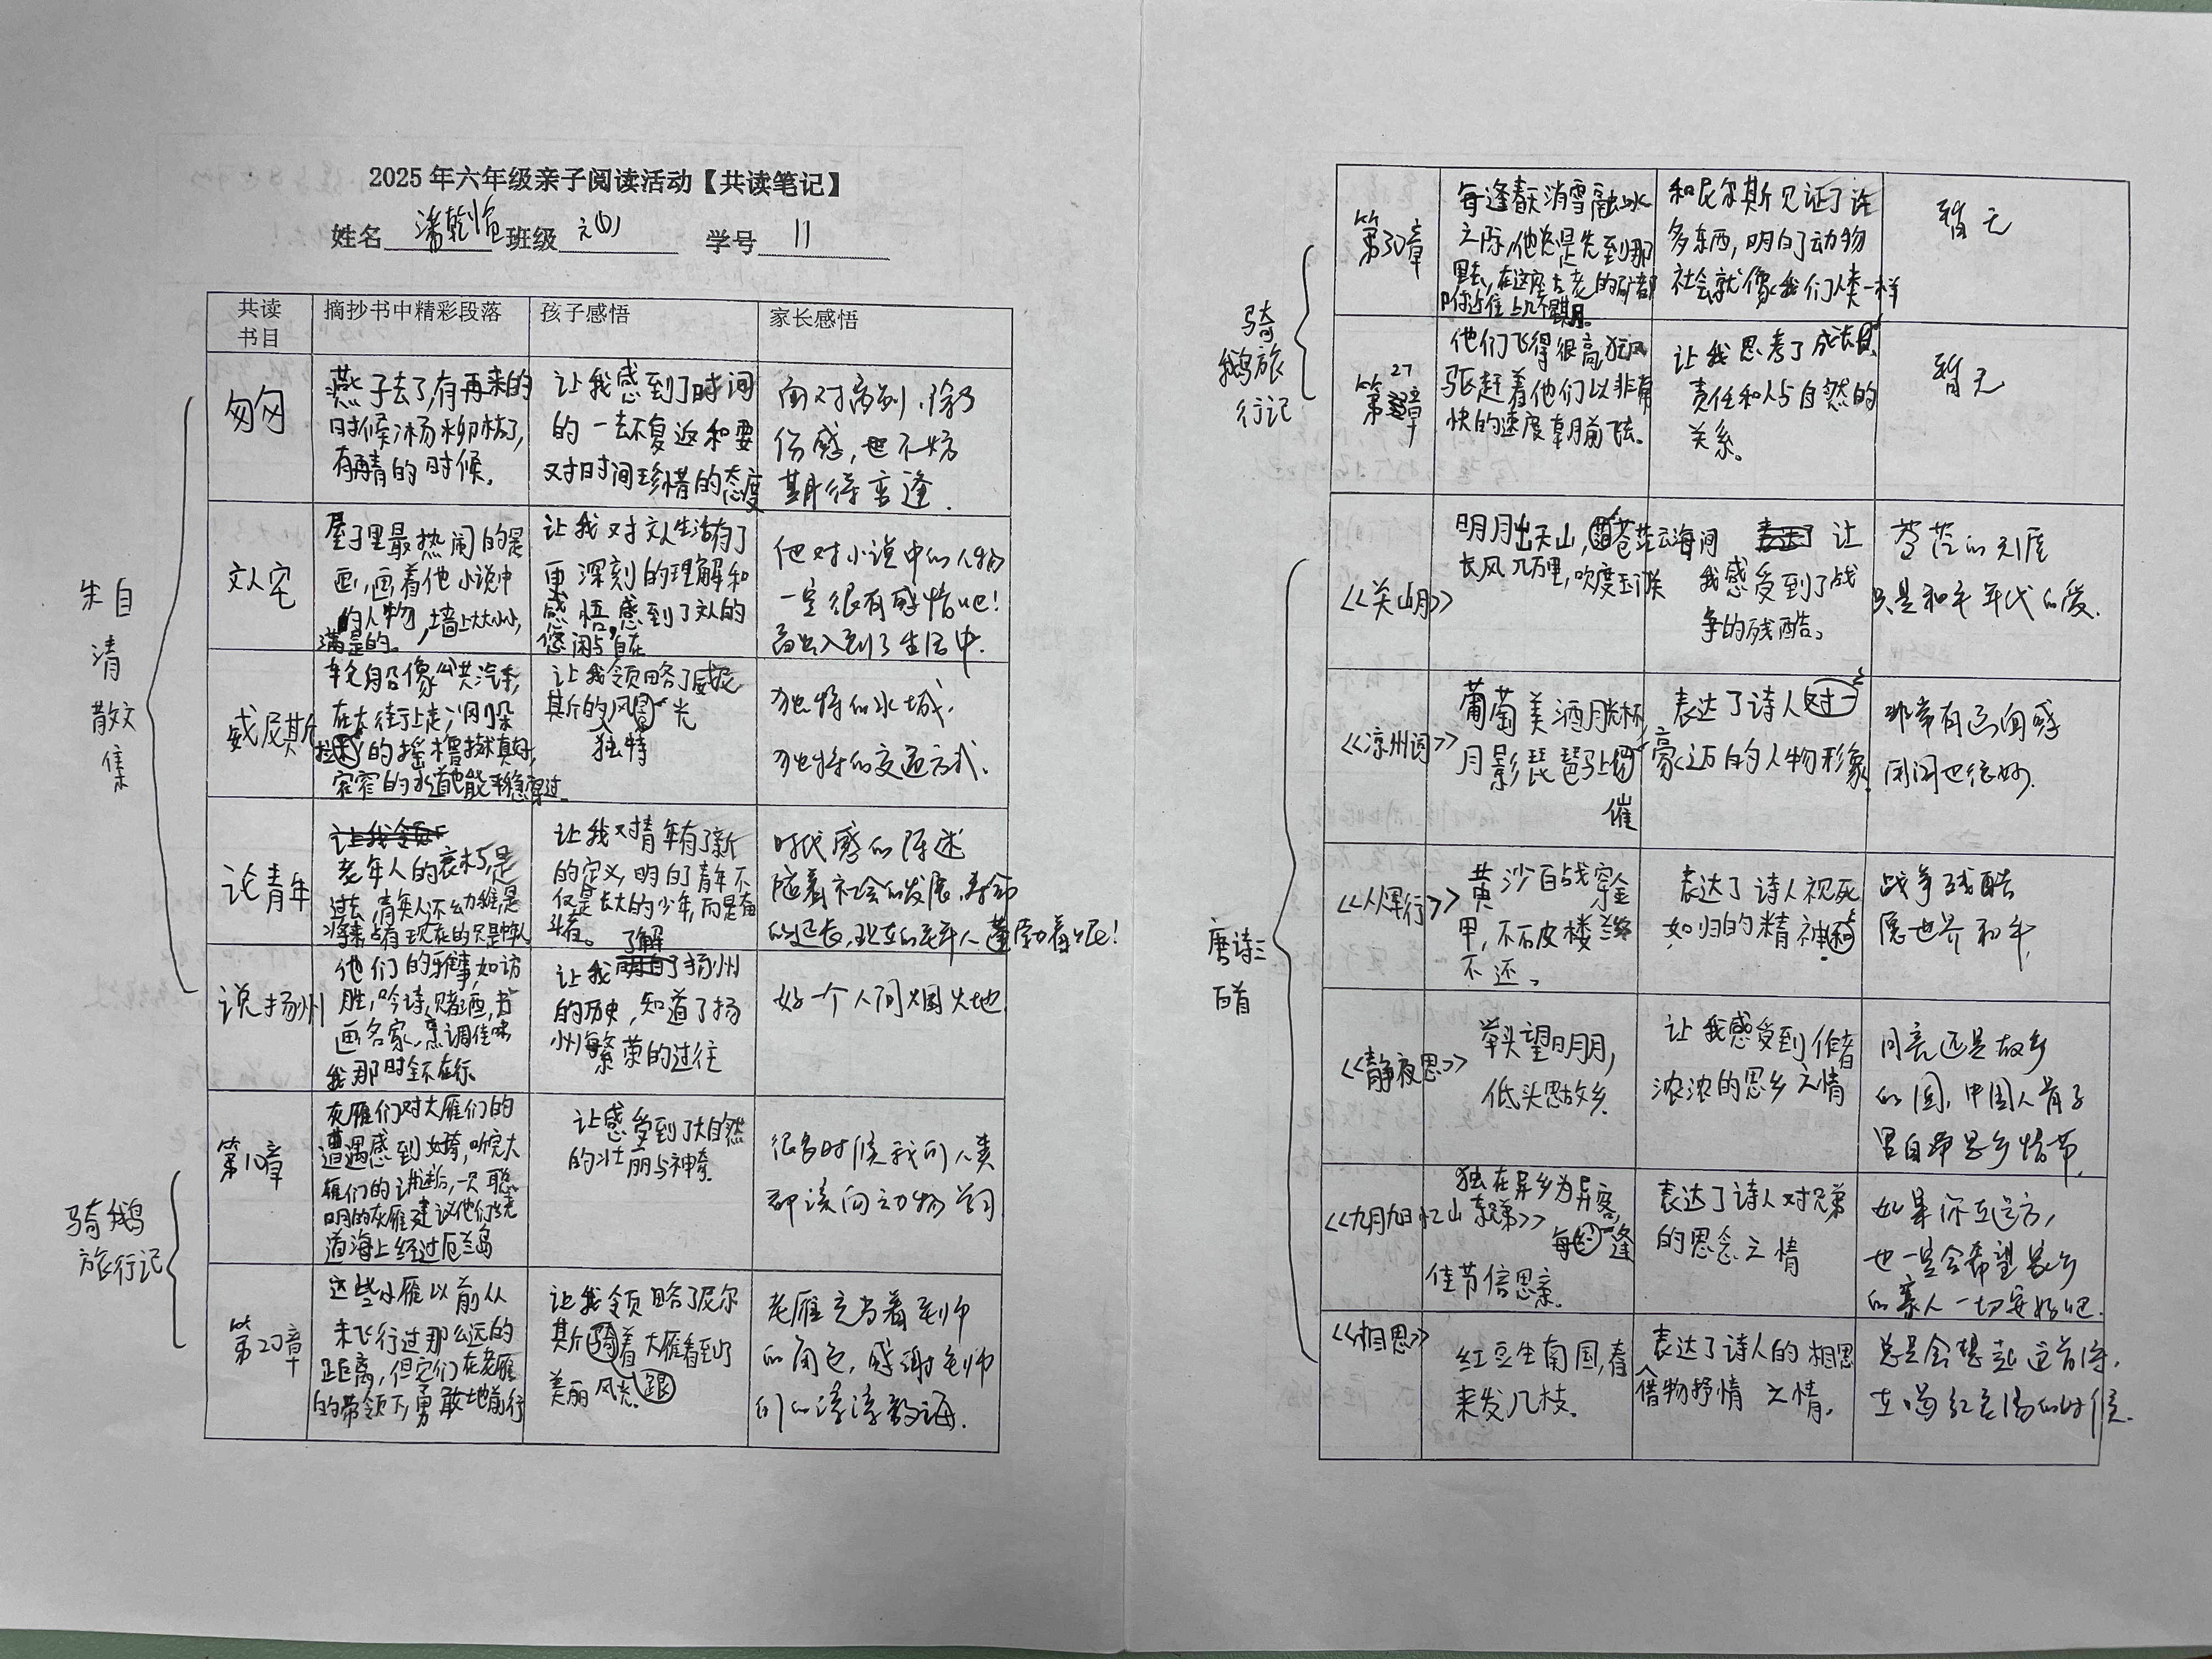 2025年六年级亲子阅读活动【共读笔记】
姓名 潘乾 班级 学号 11
共读
书目
摘抄书中精彩段落
孩子感悟
家长感悟
朱自
清
散文
集
匆匆
燕子去了,有再来的
时候,杨柳枯了,
有再青的时候。
让我感到了时间
的一去不复返和要
对时间珍惜的态度
面对离别,除了
伤感,也不妨
期待重逢.
文人宅
屋子里最热闹的是
画,画着他小说中
的人物,墙上大大小小,
满是的。
让我对文人生活有了
更深刻的理解和
感悟,感到了文人的
悠闲与自在
他对小说中的人物
一定很有感情吧!
都出入到了生活中.
威尼斯
轮船像公共汽车,
在大街上走;
的摇橹技术真好,
窄窄的水道也能平稳穿过.
让我领略了威尼
斯的风光
独特
独特的水城.
独特的交通方式.
论青年
老年人的衰朽,是
过去,青年人还幼稚,是
将来,占有现在的只是中年人
让我对青年有了新
的定义,明白了青年不
仅是长大的少年,而是奋
斗者。
时代感的陈述
随着社会的发展,寿命
的延长,现在的老年人蓬勃着呢!
说扬州
他们的雅事,如访
胜,吟诗,赌酒,书
画名家,烹调佳味
我那时全不在行.
了解
让我 了扬州
的历史,知道了扬
州繁荣的过往
好一个人间烟火地.
骑鹅
旅行记
第10章
灰雁们对大雁们的
遭遇感到好奇,听完大
雁们的讲述后,一只聪
明的灰雁建议他们绕
道海上经过厄兰岛
让感受到了大自然
的壮丽与神奇.
很多时候我们人类
都该向动物学习
第20章
这些小雁以前从
未飞行过那么远的
距离,但它们在老雁
的带领下,勇敢地前行
让我领略了尼尔
斯骑着大雁看到了
美丽风光.跟
老雁充当着老师
的角色,感谢老师
们的谆谆教诲.
骑
鹅旅
行记
第30章
每逢春天消雪融冰
之际,他总是先到那
里去,在这座古老的矿都
附近住上几个星期.
和尼尔斯见证了许
多东西,明白了动物
社会就像我们人类一样
暂无
27
第 章
他们飞得很高,狂风
驱赶着他们以非常
快的速度朝前飞去.
让我思考了成长
责任和人与自然的
关系。
暂无
唐诗三
百首
《关山月》
明月出天山,苍茫云海间
长风几万里,吹度玉门关
让
我感受到了战
争的残酷。
苍茫的天涯
只是和平年代的爱.
《凉州词》
葡萄美酒夜光杯
月影琵琶马上
催
表达了诗人对一
豪迈的人物形象.
非常有画面感
用词也很妙.
《从军行》
黄沙百战穿金
甲,不破楼兰终
不还。
表达了诗人视死
如归的精神.
战争残酷
愿世界和平,
《静夜思》
举头望明月,
低头思故乡.
让我感受到作者
浓浓的思乡之情
月亮还是故乡
的圆,中国人骨子
里自带思乡情节,
《九月九日忆山东兄弟》
独在异乡为异客,
每逢
佳节倍思亲.
表达了诗人对兄弟
的思念之情
如果你在远方,
也一定会希望家乡
的亲人一切安好吧.
《相思》
红豆生南国,春
来发几枝.
表达了诗人的相思
借物抒情 之情.
总是会想起这首诗,
在喝红豆汤的时候.